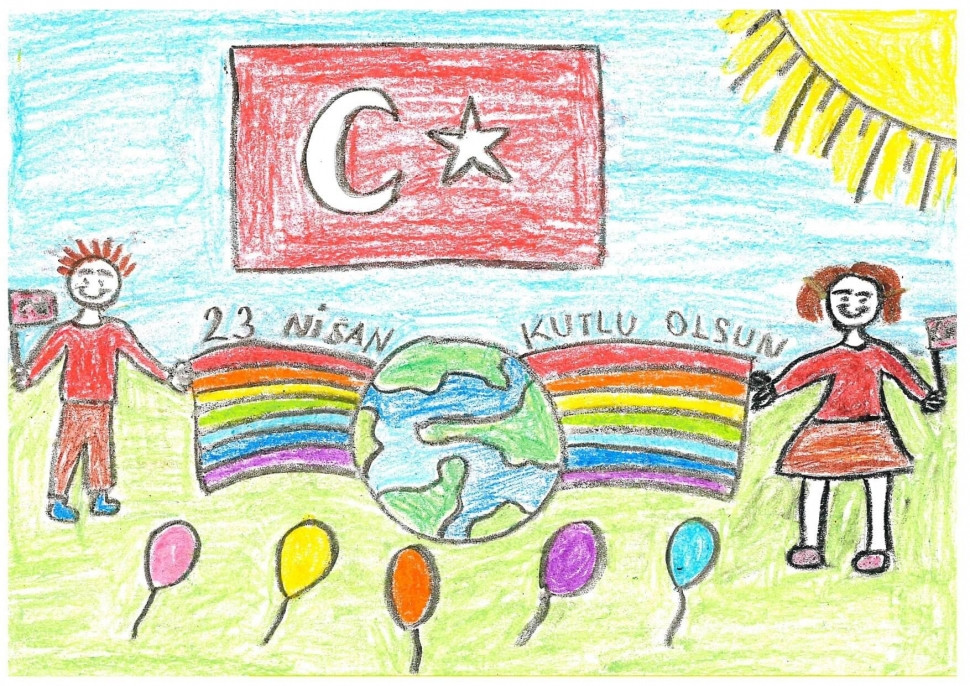 23 NİSAN KUTLU OLSUN